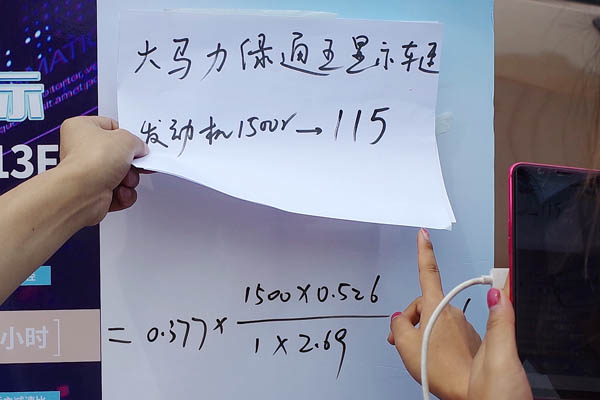 大马力绿通王显示车速
发动机1500r→115
MATR
示
13F
= 0.377 × 1500×0.526
1×2.69
小时]